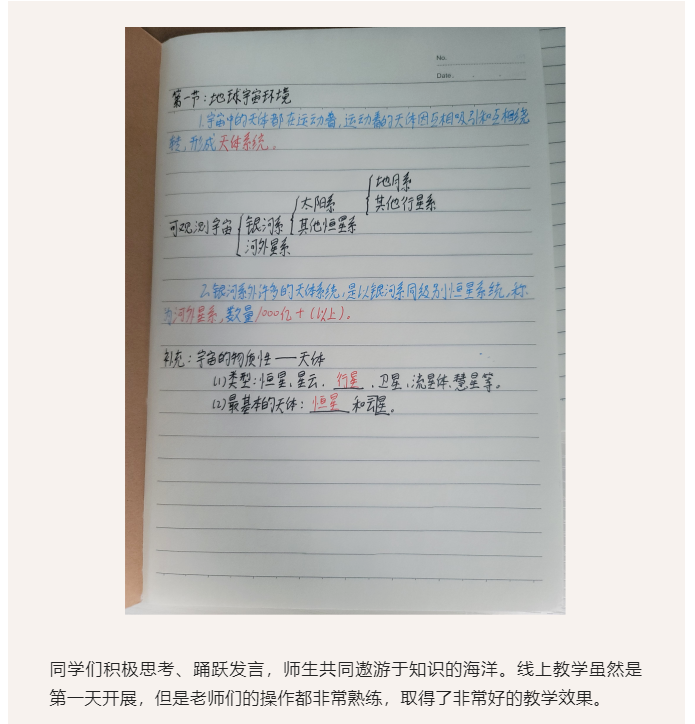 No.
Date.
第一节:地球宇宙环境
1.宇宙中的天体都在运动着,运动着的天体因互相吸引和互相绕
转,形成天体系统。
地月系
太阳系 其他行星系
可观测宇宙 银河系 其他恒星系
河外星系
2.银河系外许多的天体系统,是以银河系同级别恒星系统,称
为河外星系,数量1000亿+(以上)。
补充:宇宙的物质性——天体
(1)类型:恒星、星云、行星、卫星、流星体、慧星等。
(2)最基本的天体:恒星和星。
同学们积极思考、踊跃发言,师生共同遨游于知识的海洋。线上教学虽然是
第一天开展,但是老师们的操作都非常熟练,取得了非常好的教学效果。